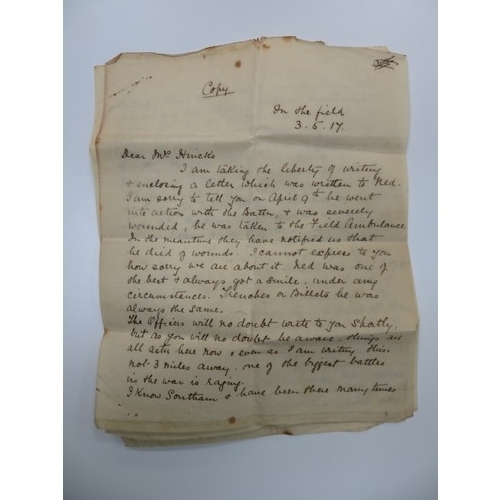 Copy
In the field
3.5.17.
Dear Mrs Hincks
I am taking the liberty of writing
& enclosing a letter which was written to Ned.
I am sorry to tell you on April 9th he went
into action with the Battn, & was severely
wounded, he was taken to the Field Ambulance
In the meantime they have notified us that
he died of wounds. I cannot express to you
how sorry we are about it. Ned was one of
the best & always got a smile, under any
circumstances. Trenches or Billets he was
always the same.
The Officers will no doubt write to you shortly,
but as you will no doubt be aware, things are
all astir here now & even as I am writing this.
not 3 miles away, one of the biggest battles
in the war is raging.
I know Southam & have been there many times